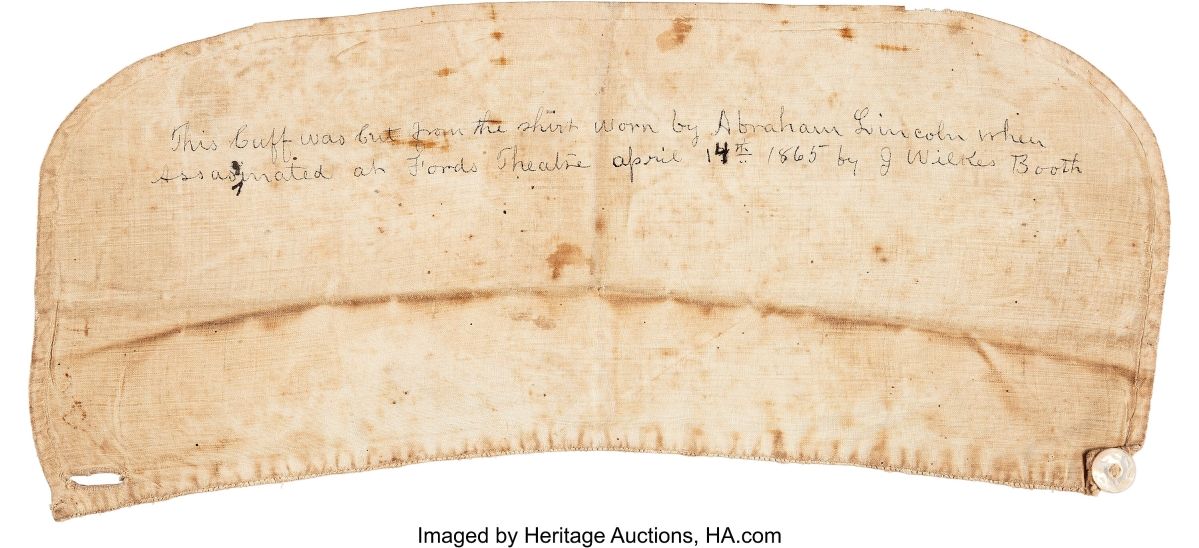 This Cuff was Cut from the shirt worn by Abraham Lincoln when
Assassinated at Fords Theatre april 14th 1865 by J Wilkes Booth
Imaged by Heritage Auctions, HA.com